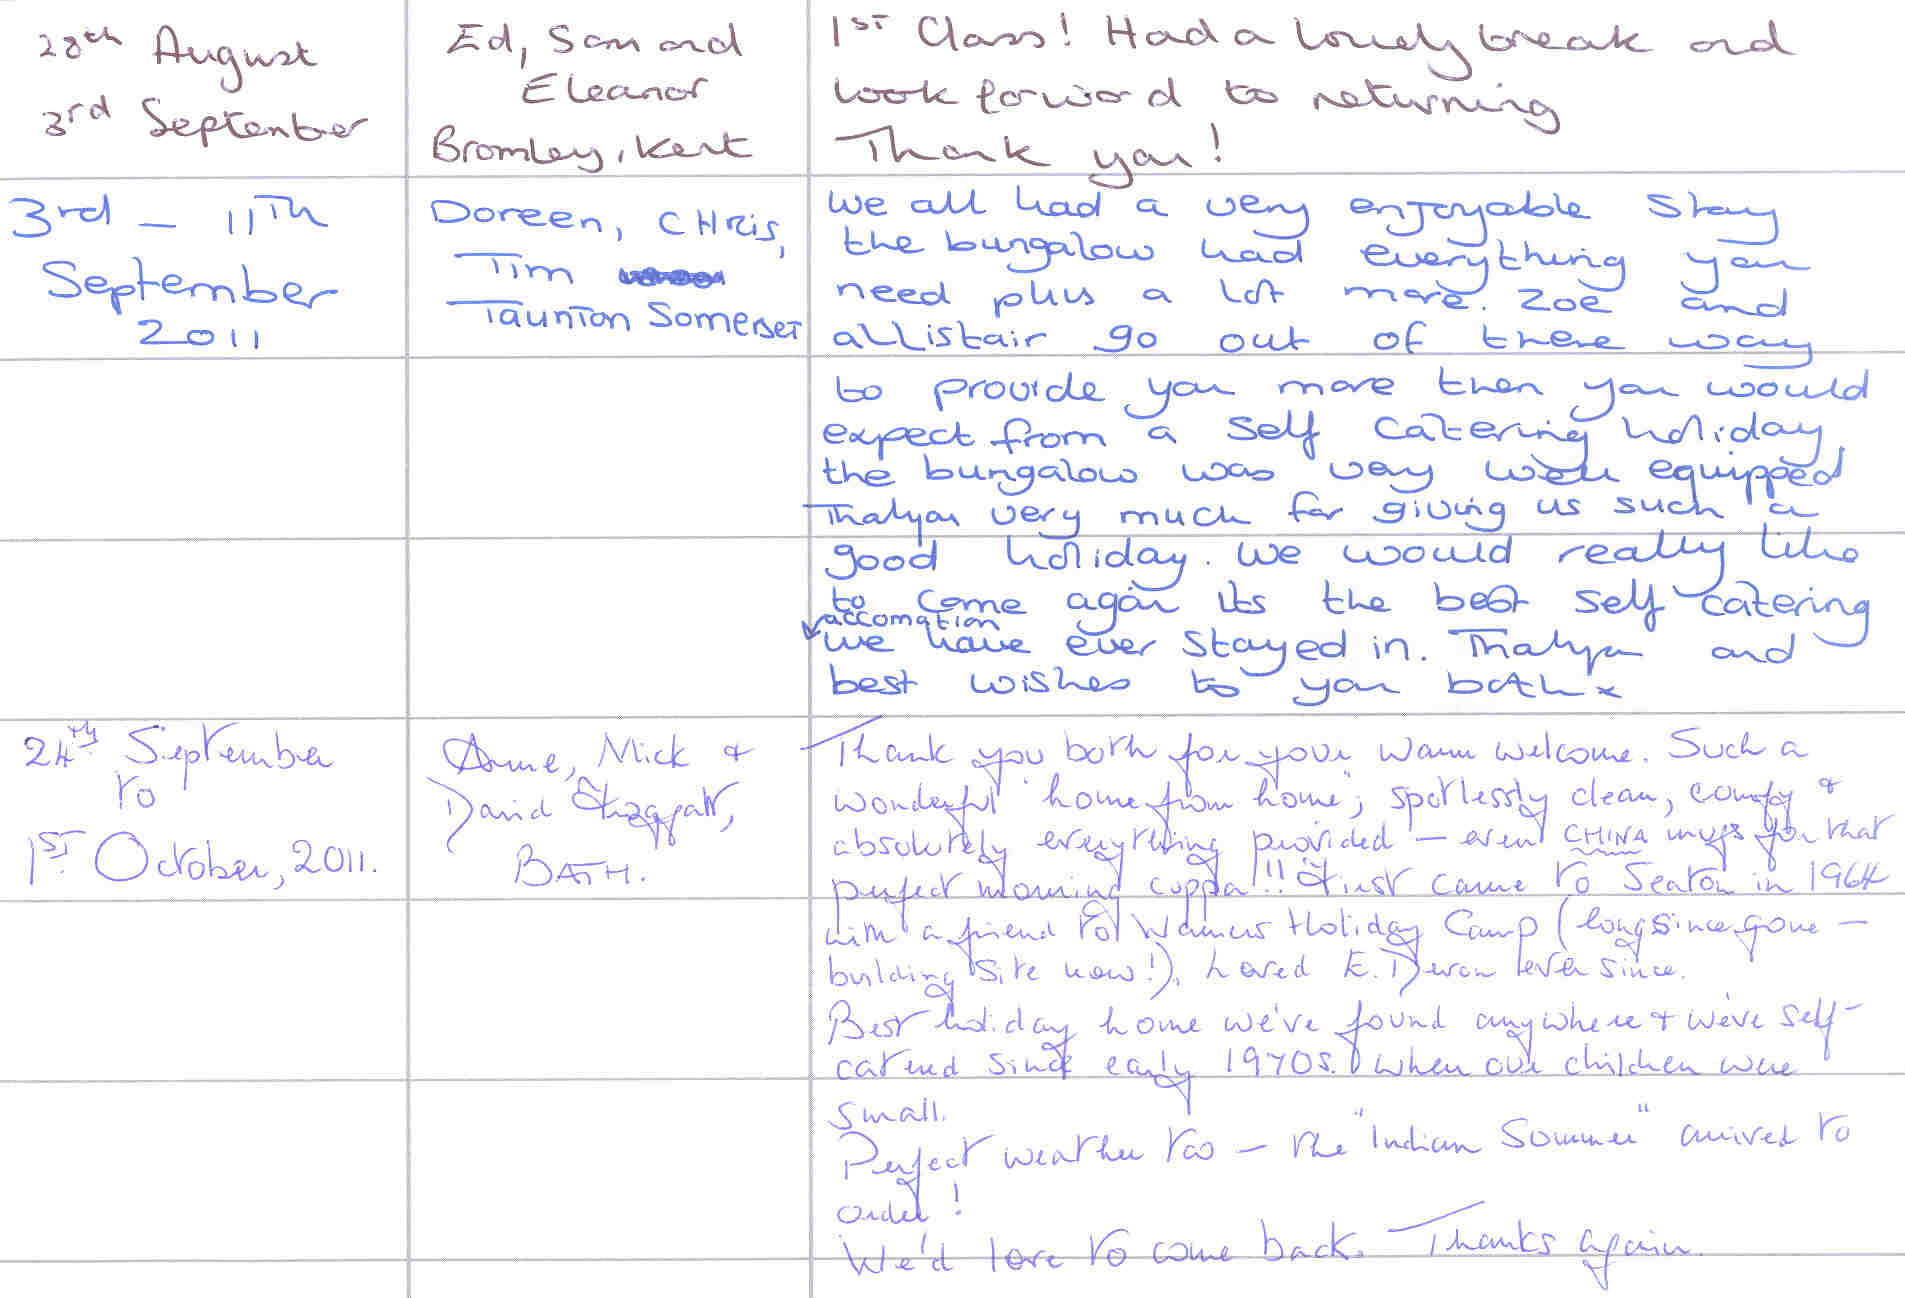 28th August
3rd September
Ed, Sam and
Eleanor
Bromley, Kent
1ST Class! Had a lovely break and
look forward to returning
Thank you!
3rd - 11Th
September
2011
Doreen, CHris,
Tim
Taunton Somerset
we all had a very enjoyable stay
the bungalow had everything you
need plus a lot more. Zoe and
allistair go out of there way
to provide you more then you would
expect from a self catering holiday
the bungalow was very well equipped
Thankyou very much for giving us such a
good holiday. we would really like
to come again its the best self catering
accomation
we have ever stayed in. Thankyou and
best wishes to you both x
24th September
to
1ST October, 2011.
Anne, Mick &
David
BATH.
Thank you both for your warm welcome. Such a
wonderful "home from home", spotlessly clean, comfy &
absolutely everything provided - even CHINA mugs for that
perfect morning cuppa!! I first came to Seaton in 1964
with a friend to Warners Holiday Camp (long since gone -
building site now!), loved E. Devon ever since.
Best holiday home we've found anywhere & we've self-
catered since early 1970s. when our children were
small.
Perfect weather too - the "Indian Summer" arrived to
order!
We'd love to come back. Thanks again.